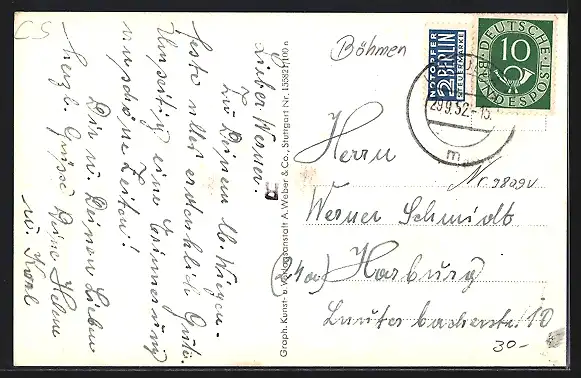 CS
Lieber Werner.
Zu Deinem lb. Wiegen-
feste alles erdenklich Gute.
Umseitig eine Erinnerung
an schöne Zeiten!
Dir u. Deinen Lieben
herzl. Grüsse Deine Helene
u. Karl
Graph. Kunst- u. Verlagsanstalt A. Weber & Co., Stuttgart Nr. 13582/1100 n
Böhmen
NOTOPFER
2 BERLIN
STEUERMARKE
DEUTSCHE
10
BUNDESPOST
29.9.52.-15
m
Nr. 9809v
Herrn
Werner Schmidt
(24a) Harburg
Lauterbacherstr. 10
30-